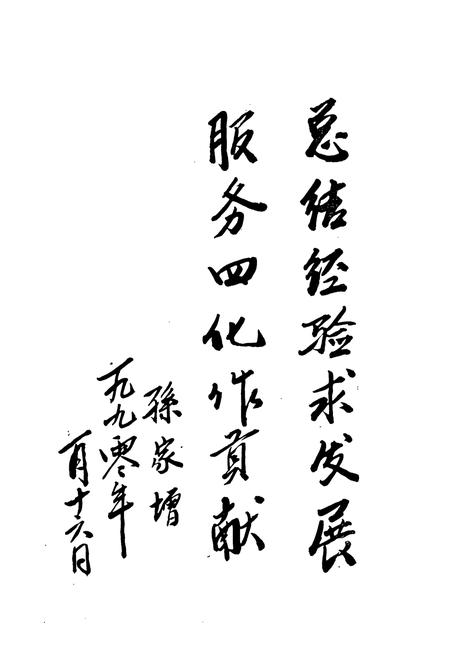 总结经验求发展
服务四化作贡献
孫家增
一九九零年
一月十六日